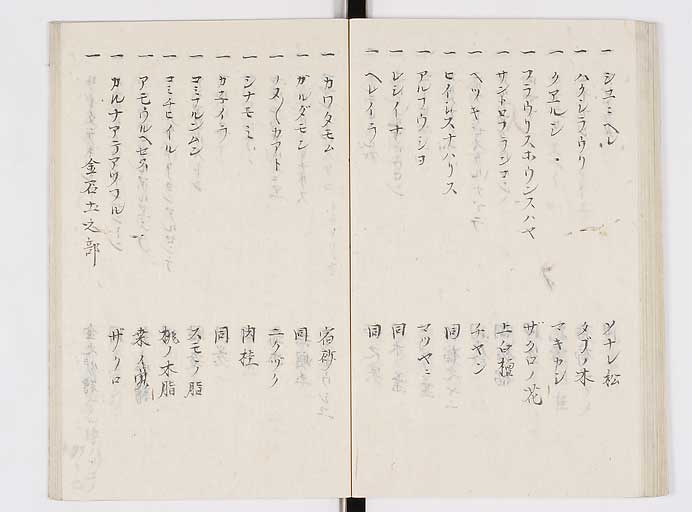 一 シユニヘル ソナレ松
一 ハクシラウリ タブノ木
一 クエルシ マキカレ
一 フラウリスホウンスハヤ ザクロノ花
一 サントロフランコン 上白檀
一 ヘツキ チヤン
一 ヒイシスナハリス 同
一 アルフウシヨ マツヤニ
一 レシイナ 同
一 ヘレイラ 同
一 カワタモム 宿砂
一 カルダモン 同
一 ノス〱カアト ニクヅク
一 シナモミ 肉桂
一 カネイラ 同
一 コミフルンムン スモヽノ脂
一 コミチヒイル 桃ノ木脂
一 アモウルヘセス 桑ノ実
一 カルナアテアツフル ザクロ
金石土之部